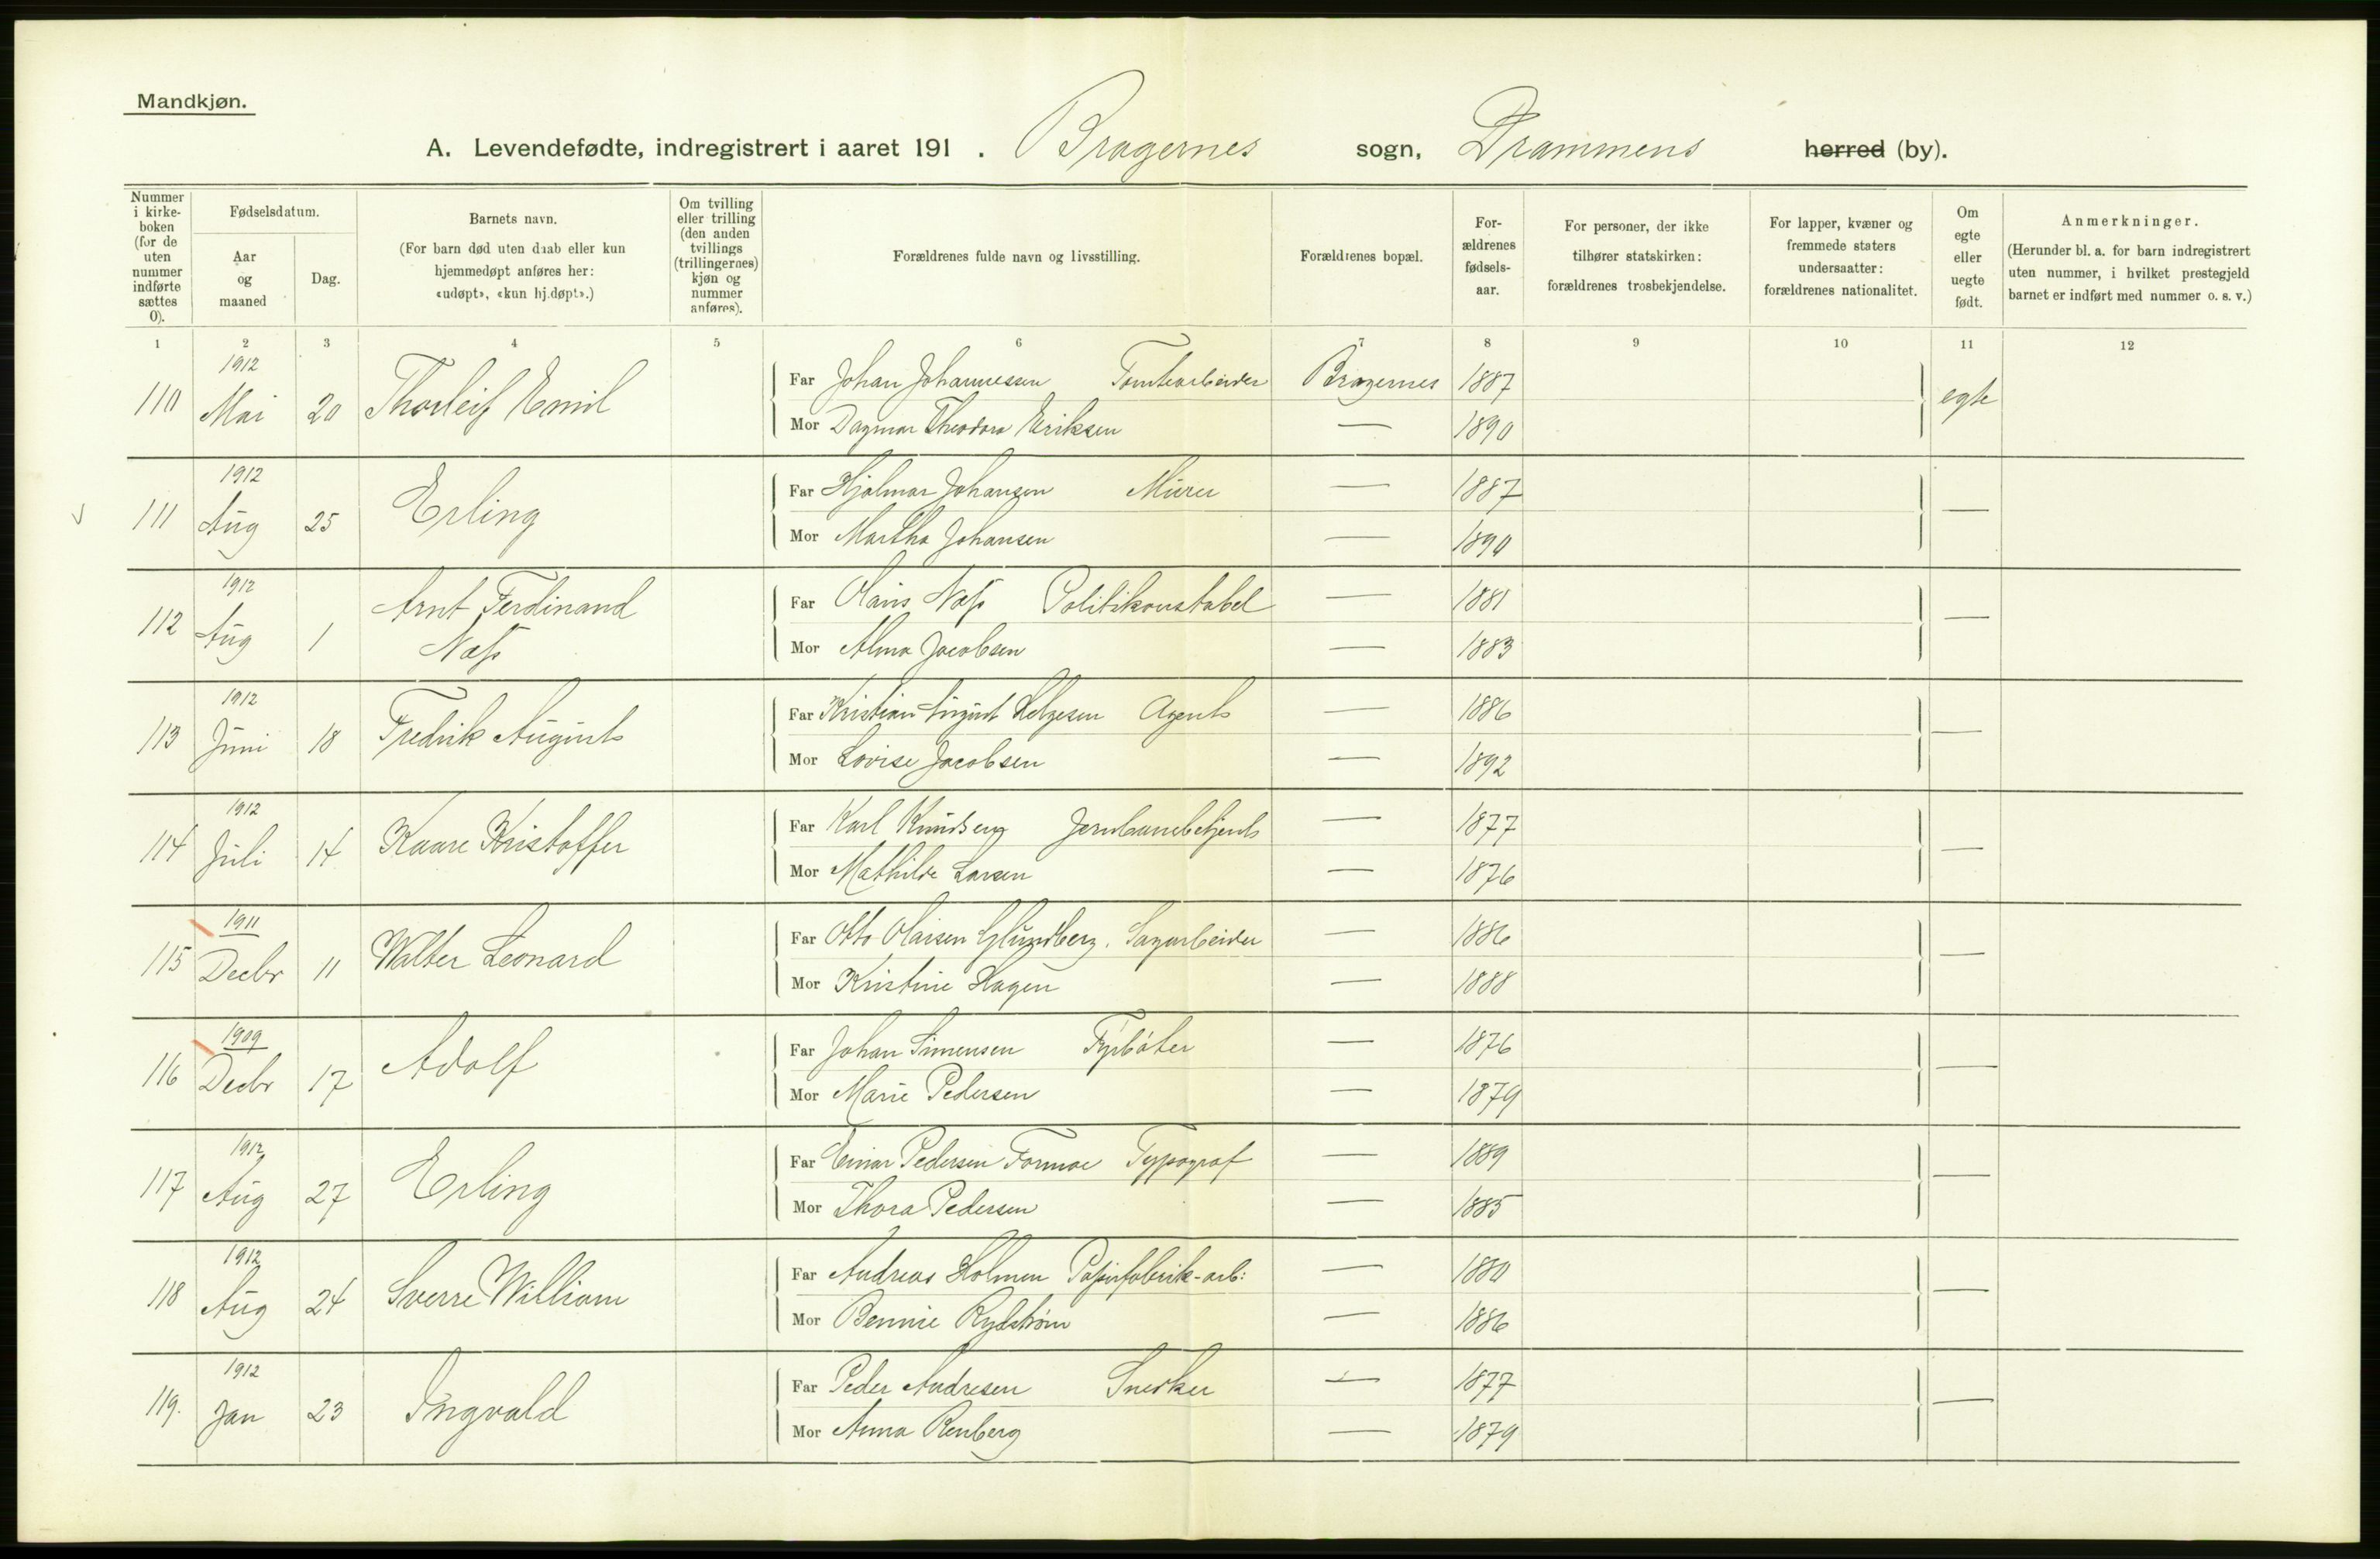 Mandkjøn.
A. Levendefødte, indregistrert i aaret 191 . Bragernes sogn, Drammens herred (by).
Nummer i kirkeboken (for de uten nummer indførte sættes 0).
Fødselsdatum.
Aar og maaned
Dag.
Barnets navn.
(For barn død uten daab eller kun hjemmedøpt anføres her: «udøpt», «kun hj.døpt».)
Om tvilling eller trilling (den anden tvillings (trillingernes) kjøn og nummer anføres).
Forældrenes fulde navn og livsstilling.
Forældrenes bopæl.
For-ældrenes fødsels-aar.
For personer, der ikke tilhører statskirken: forældrenes trosbekjendelse.
For lapper, kvæner og fremmede staters undersaatter: forældrenes nationalitet.
Om egte eller uegte født.
Anmerkninger.
(Herunder bl. a. for barn indregistrert uten nummer, i hvilket prestegjeld barnet er indført med nummer o. s. v.)
1 2 3 4 5 6 7 8 9 10 11 12
110 1912 Mai 20 Thorleif Emil Far Johan Johannessen Tomtearbeider Bragernes 1887 egte
Mor Dagmar Theodora Eriksen — 1890
111 1912 Aug 25 Erling Far Hjalmar Johansen Murer — 1887 —
Mor Martha Johansen — 1890
112 1912 Aug 1 Arnt Ferdinand Næss Far Olaus Næss Politikonstabel — 1881 —
Mor Alma Jacobsen — 1883
113 1912 Juni 18 Fredrik August Far Kristian August Helgesen Agent — 1886 —
Mor Lovise Jacobsen — 1892
114 1912 Juli 14 Kaare Kristoffer Far Karl Knudsen Jernbanebetjent — 1877 —
Mor Mathilde Larsen — 1876
115 1911 Decbr 11 Walter Leonard Far Otto Olaisen Sagarbeider — 1886 —
Mor Kristine Hagen — 1888
116 1909 Decbr 17 Adolf Far Johan Simensen Fyrbøter — 1876 —
Mor Marie Pedersen — 1879
117 1912 Aug 27 Erling Far Einar Pedersen Formoe Typograf — 1889 —
Mor Thora Pedersen — 1885
118 1912 Aug 24 Sverre William Far Andreas Holmen Papirfabrik-arb: — 1880 —
Mor Bennie Rydstrøm — 1886
119. 1912 Jan 23 Ingvald Far Peder Andresen Snedker — 1877 —
Mor Anna Renberg — 1879